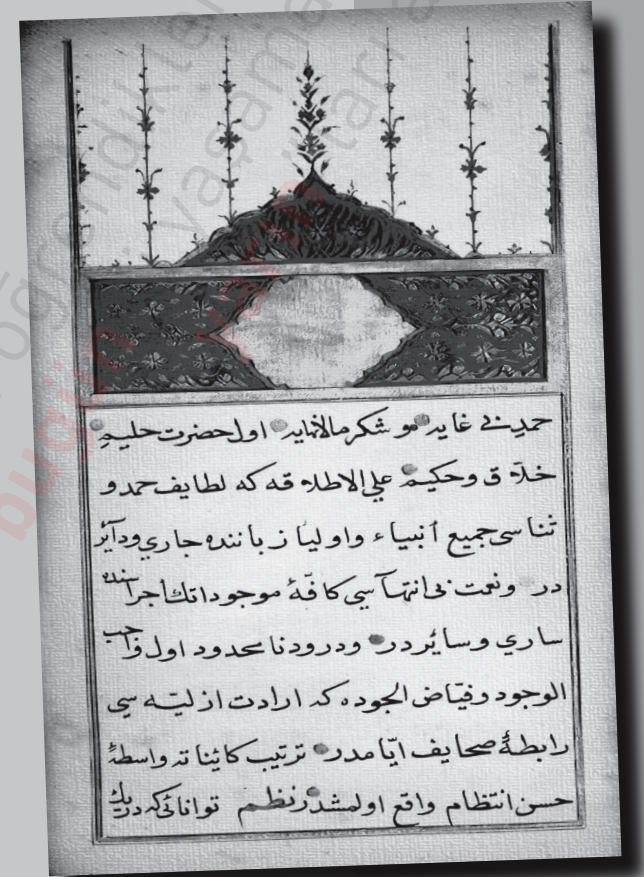 حمد بی غایه و شکر مالانهایه اول حضرت حلیم
خلاق و حکیم علی الاطلاقه که لطایف حمد و
ثناسی جمیع انبیاء و اولیا زباننده جاری و دآئر
در و نعت بی انتهآسی کافّۀ موجوداتك اجراسنده
ساری و سایٔر در و درود نامحدود اول واجب
الوجود و فیّاض الجوده که ارادت ازلیّه سی
رابطۀ صحایف ایّامدر ترتیب کایٔناته واسطۀ
حسن انتظام واقع اولمشدر نظم توانائی که در یك
öğrendikler
yaşama
bugün yarın